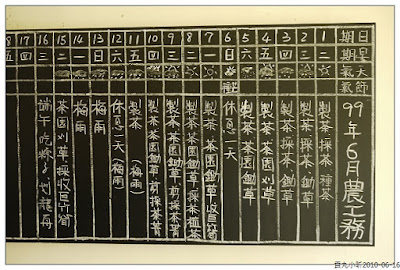 日期 星期 天氣 節氣
99年6月農工務
1 二 製茶 採茶 種茶
2 三 製茶 採茶 鋤草
3 四 製茶 採茶 鋤草
4 五 製茶 茶園刈草
5 六 製茶 茶園刈草
6 日 休息一天
7 一 製茶 茶園鋤草 收巨竹筍
8 二 製茶 茶園鋤草 採種茶
9 三 製茶 茶園鋤草 剪採茶菁
10 四 製茶 茶園鋤草 剪採茶菁
11 五 製茶 (梅雨)
12 六 休息一天 (梅雨)
13 日 梅雨
14 一 梅雨
15 二 茶園刈草 採收巨竹筍
16 三 端午 吃粽子 划龍舟
17 四
18 五
2010-06-16